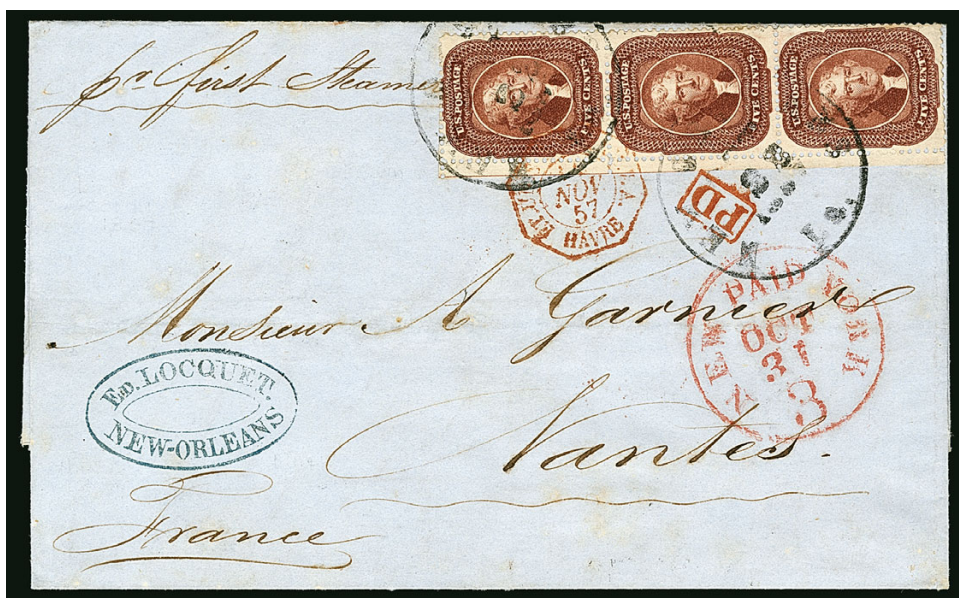 pr. first Steamer
U.S. POSTAGE FIVE CENTS
U.S. POSTAGE FIVE CENTS
U.S. POSTAGE FIVE CENTS
NOV.
57
HAVRE
PD
NEW PAID YORK
OCT
31
3
Monsieur A Garnier
ED. LOCQUET.
NEW-ORLEANS
Nantes.
France